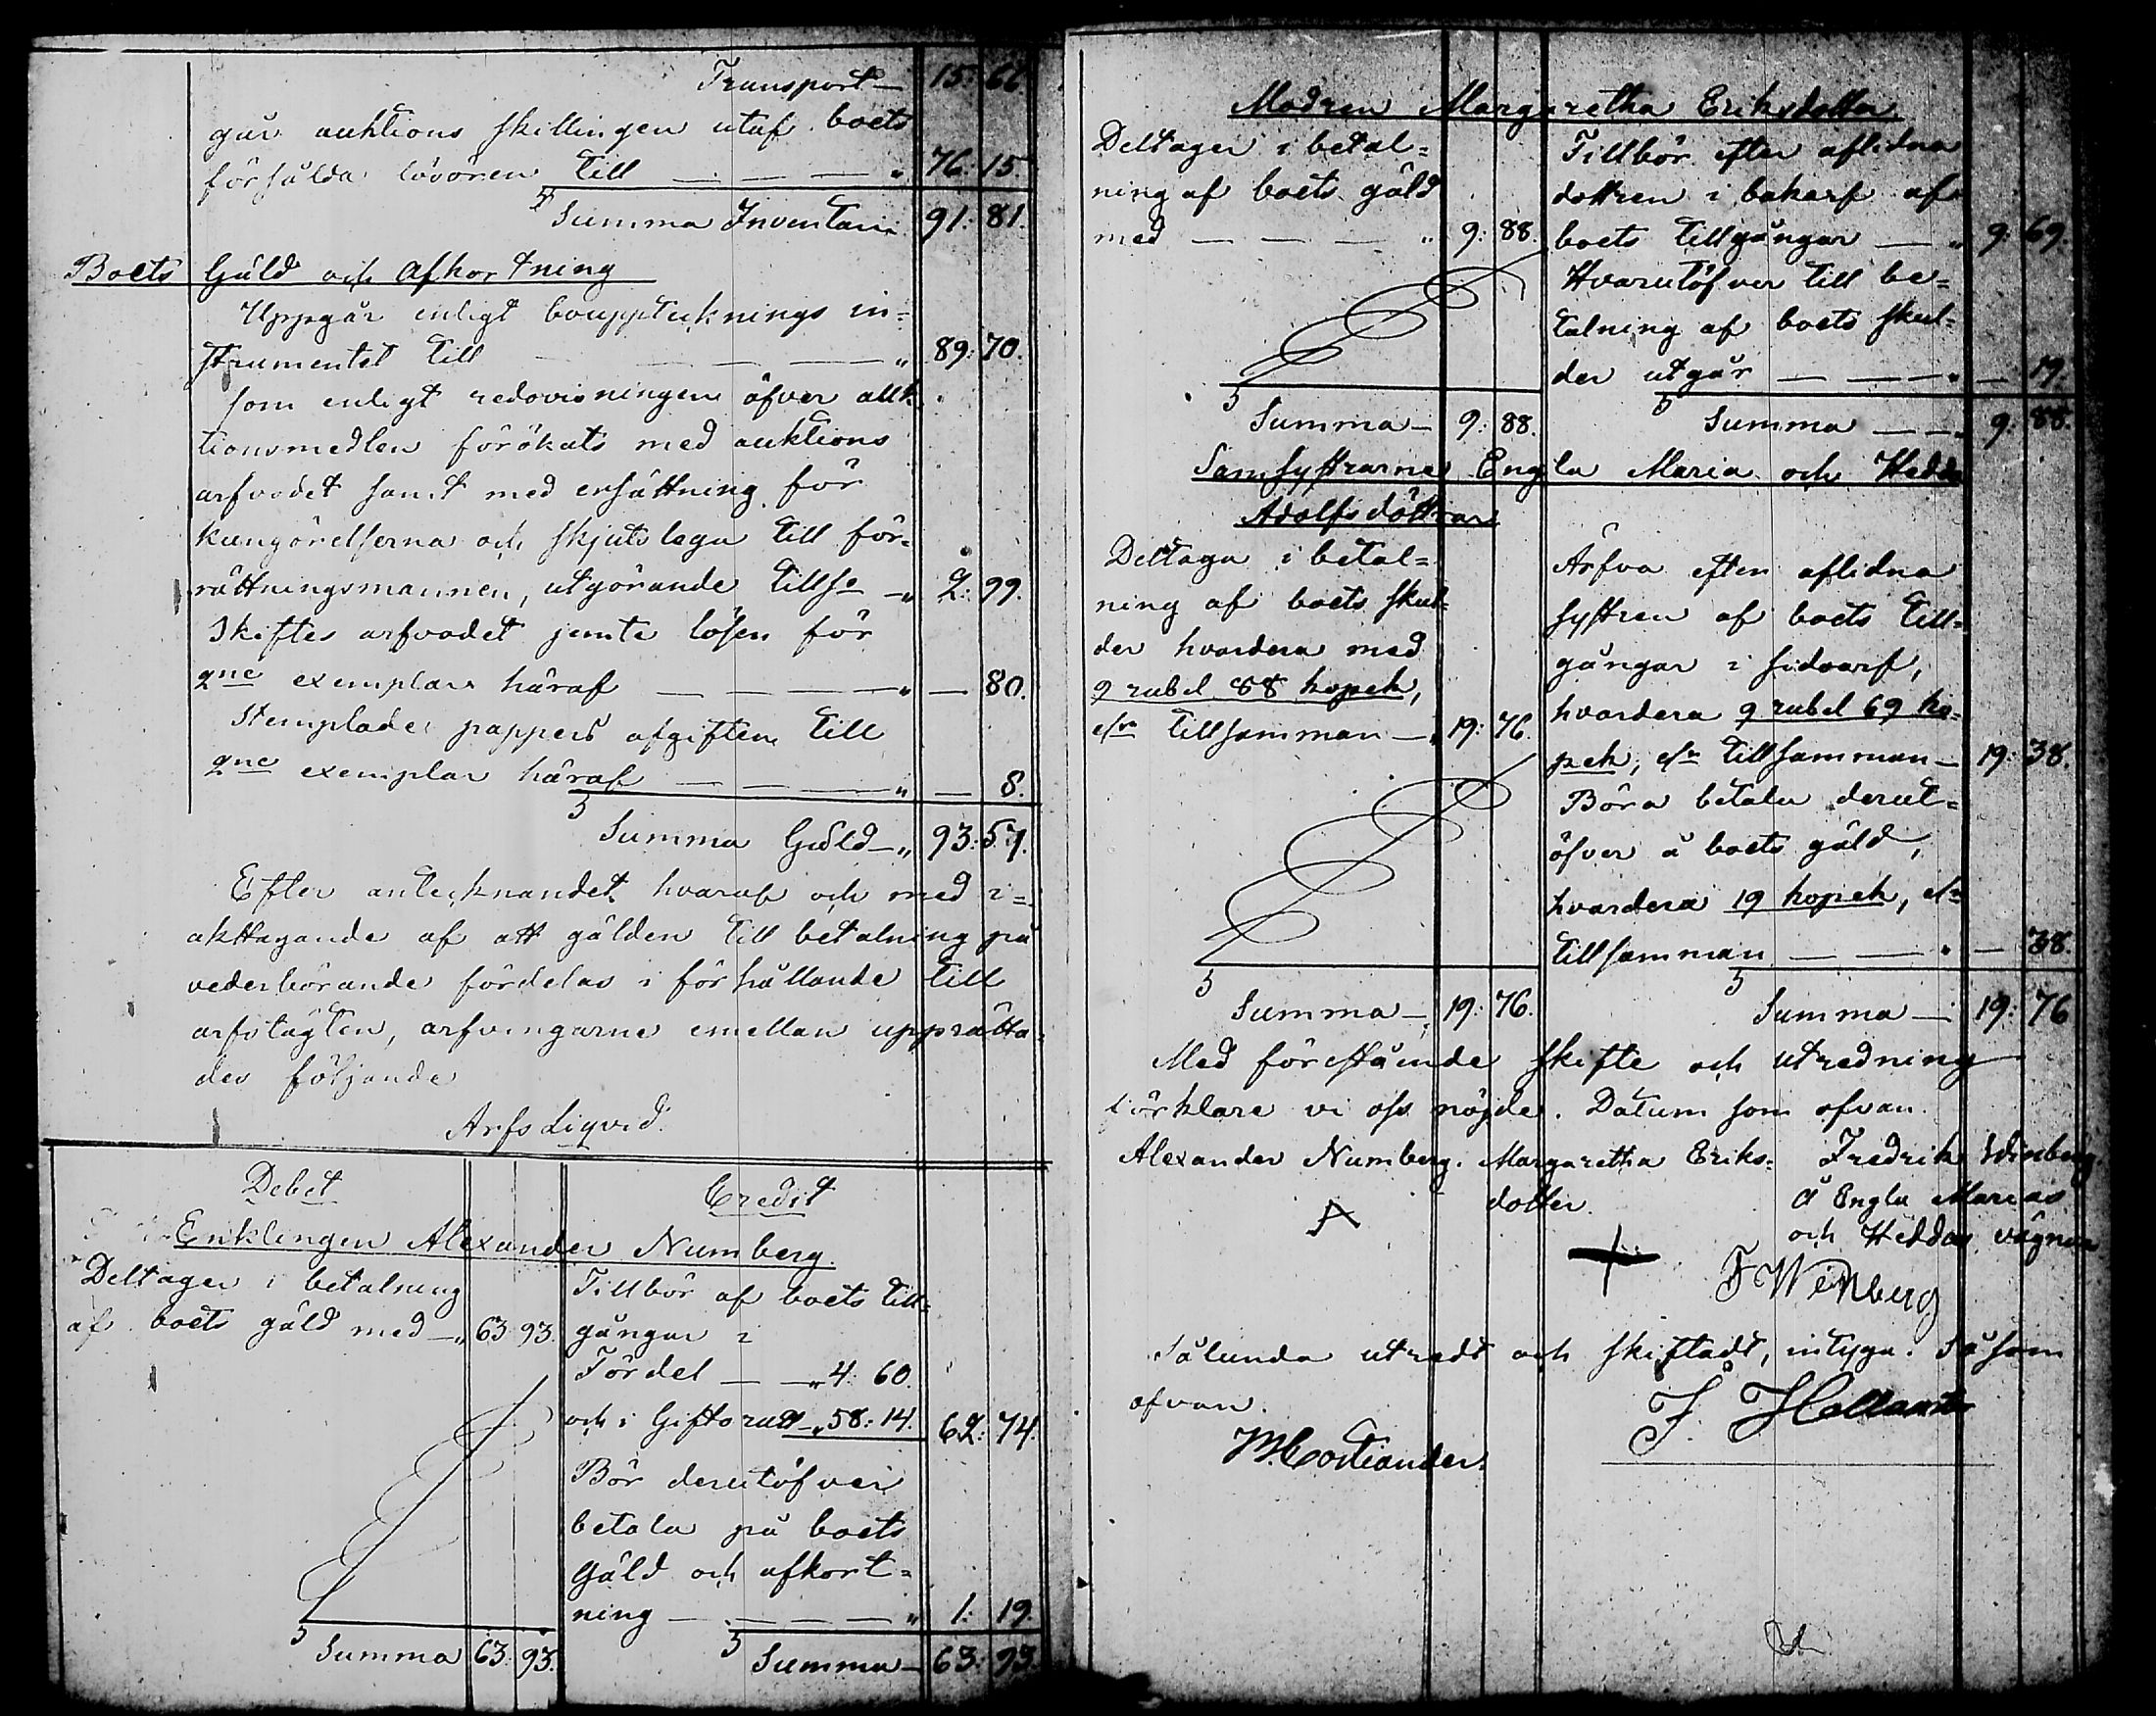 Transport — 15: 66
går auktions skillingen utaf boets
försålda lösören till — — — " 76: 15.
Summa Inventarii 91: 81.
Boets Gäld och afkortning
Uppgår enligt bouppteknings in=
strumentet till — — — " 89: 70.
som enligt redovisningen öfver auk=
tionsmedlen förökats med auktions
arfvodet samt med ersättning för
kungörelserna och skjuts lega till för=
rättningsmannen, utgörande tills. — " 2: 99.
Skiftes arfvodet jemte lösen för
2ne exemplar häraf — — — " — 80.
Stemplade pappers afgiften till
2ne exemplar häraf — — — " — 8.
Summa Gäld — " 93: 57.
Efter antecknandet hvaraf och med i=
akttagande af att gälden till betalning på
vederbörande fördelas i förhållande till
arfstägten, arfvingarne emellan upprätta=
des följande
Arfs Liqvid.
Debet
Credit
Enklingen Alexander Numberg.
Deltager i betalning
af boets gäld med — " 63 93.
Summa 63: 93.
Tillbör af boets till=
gångar i
Fördel — — " 4: 60.
och i Giftorätt — " 58: 14. 62: 74.
Bör derutöfver
betala på boets
Gäld och afkort=
ning — — — — " 1: 19.
Summa — 63: 93.
Modren Margaretha Eriksdotter.
Deltager i betal=
ning af boets gäld
med — — — " 9: 88.
Summa — 9: 88.
Tillbör efter aflidna
dottren i bakarf af
boets tillgångar — " 9: 69.
Hvarutöfver till be=
talning af boets skul=
der utgår — — — " — 19.
Summa — — 9: 88.
Samsystrarne Engla Maria och Hedda
Adolfsdöttrar
Deltaga i betal=
ning af boets skul=
der hvardera med
9 rubel 88 kopek,
elr tillsamman — " 19: 76.
Summa — 19: 76.
Ärfva efter aflidna
systren af boets till=
gångar i sidoarf,
hvardera 9 rubel 69 ko=
pek, elr tillsamman — 19: 38.
Böra betala derut=
öfver å boets gäld,
hvardera 19 kopek, elr
tillsamman — — " — 38.
Summa — 19: 76
Med förestående skifte och utredning
förklare vi oss nöjde. Datum som ofvan.
Alexander Numberg. Margaretha Eriks= Fredrik Winberg
dotter. å Engla Marias
och Heddas vägnar
F Winberg
Sålunda utredt och skiftadt, intyga. Såsom
ofvan.
F. Hollander